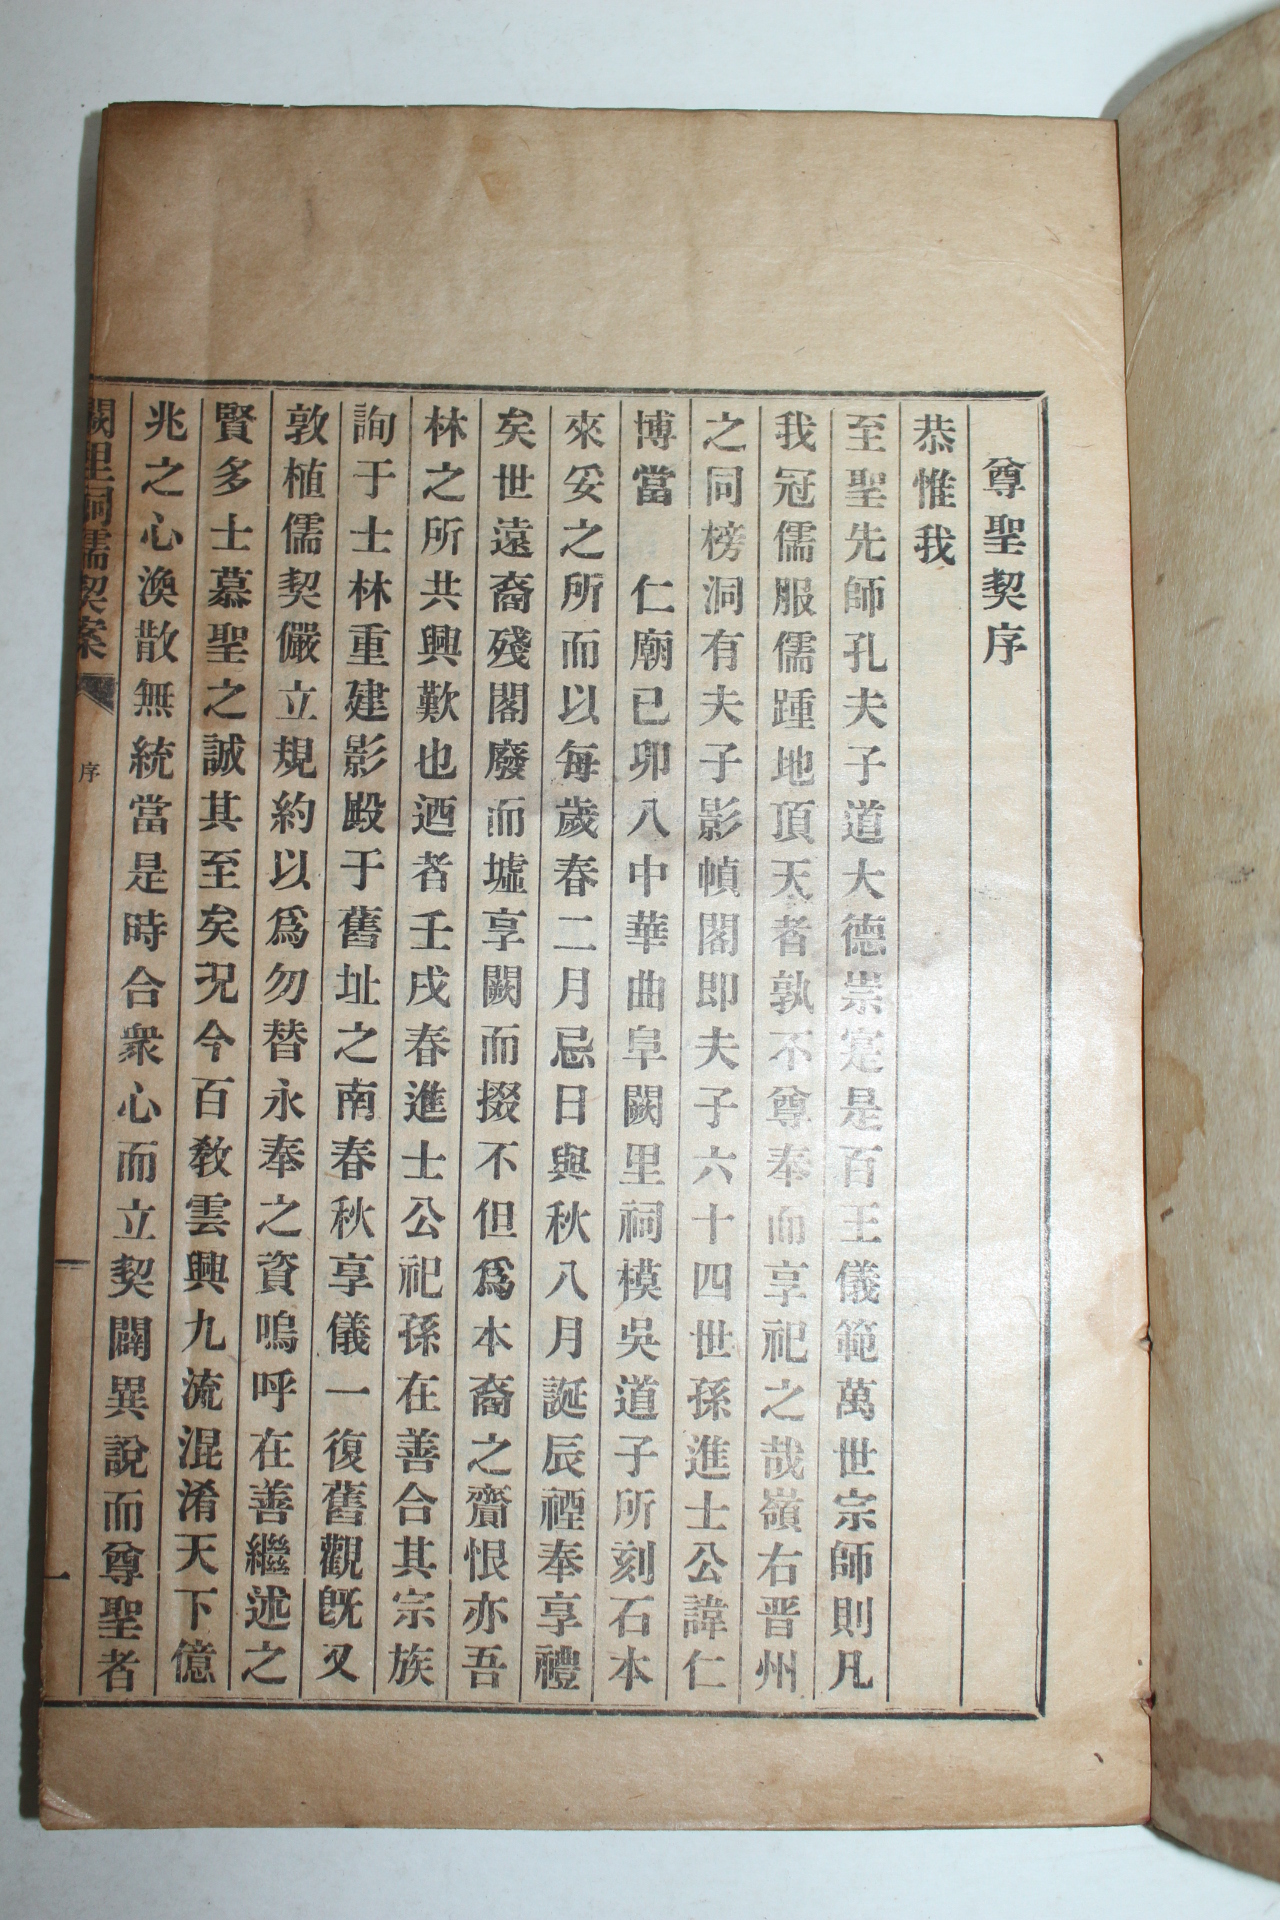 尊聖契序
恭惟我
至聖先師孔夫子道大德崇寔是百王儀範萬世宗師則凡
我冠儒服儒踵地頂天者孰不尊奉而享祀之哉嶺右晋州
之同榜洞有夫子影幀閣即夫子六十四世孫進士公諱仁
博當 仁廟已卯八中華曲阜闕里祠模吳道子所刻石本
來妥之所而以每歲春二月忌日與秋八月誕辰禋奉享禮
矣世遠裔殘閣廢而墟享闕而掇不但爲本裔之齎恨亦吾
林之所共興歎也迺者壬戌春進士公祀孫在善合其宗族
詢于士林重建影殿于舊址之南春秋享儀一復舊觀旣又
敦植儒契儼立規約以爲勿替永奉之資嗚呼在善繼述之
賢多士慕聖之誠其至矣况今百敎雲興九流混淆天下億
兆之心渙散無統當是時合衆心而立契闢異說而尊聖者
闕里祠儒契案 序 一